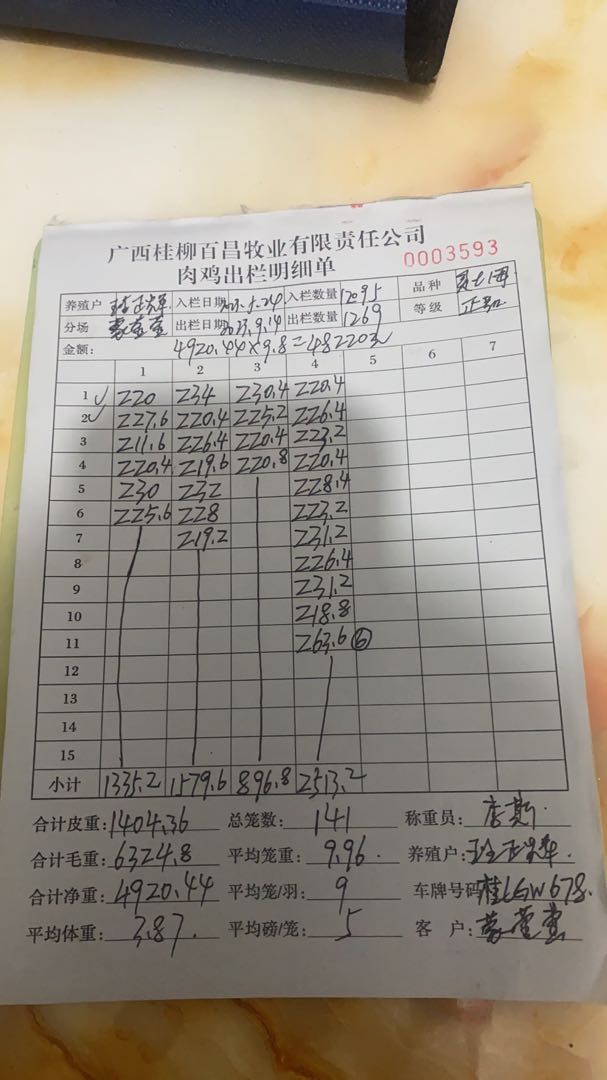 广西桂柳百昌牧业有限责任公司
肉鸡出栏明细单 0003593
养殖户 入栏日期 入栏数量 12095 品种
分场 出栏日期 2023.9.14 出栏数量 1269 等级 正品
金额: 4920.44×9.8=48220元
1 2 3 4 5 6 7
1 220 234 230.4 220.4
2 227.6 220.4 225.2 226.4
3 211.6 226.4 220.4 223.2
4 220.4 219.6 220.8 220.4
5 230 232 228.4
6 225.6 228 223.2
7 219.2 231.2
8 226.4
9 231.2
10 218.8
11 263.6 ⑥
12
13
14
15
小计 1335.2 1579.6 896.8 2513.2
合计皮重: 1404.36 总笼数: 141 称重员: 李斯
合计毛重: 6324.8 平均笼重: 9.96 养殖户:
合计净重: 4920.44 平均笼/羽: 9 车牌号码 桂LGW678
平均体重: 3.87 平均磅/笼: 5 客户: